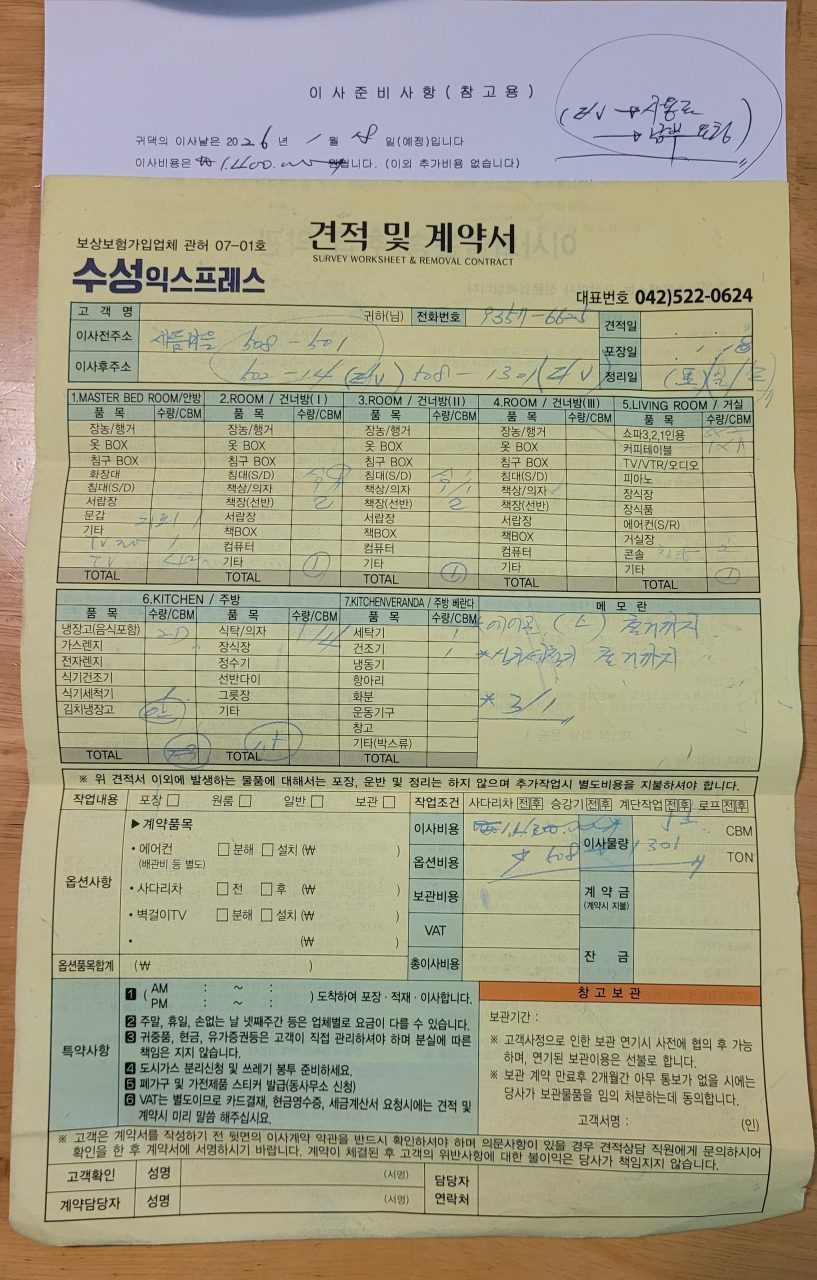 이사준비사항(참고용)
(E/V → 사용료
→ 납부 요망)
귀댁의 이사날은 2026년 1월 18일(예정)입니다
이사비용은 ₩1,400,000 원입니다. (이외 추가비용 없습니다)
보상보험가입업체 관허 07-01호
견적 및 계약서
SURVEY WORKSHEET & REMOVAL CONTRACT
수성익스프레스
대표번호 042)522-0624
고객명 귀하(님) 전화번호 9357-6625 견적일 . . .
이사전주소 508-501 포장일
이사후주소 508-1301 (E/V) 정리일
1.MASTER BED ROOM/안방 2.ROOM / 건너방(Ⅰ) 3.ROOM / 건너방(Ⅱ) 4.ROOM / 건너방(Ⅲ) 5.LIVING ROOM / 거실
품 목 수량/CBM 품 목 수량/CBM 품 목 수량/CBM 품 목 수량/CBM 품 목 수량/CBM
장농/행거 장농/행거 장농/행거 장농/행거 쇼파3,2,1인용
옷 BOX 옷 BOX 옷 BOX 옷 BOX 커피테이블
침구 BOX 침구 BOX 침구 BOX 침구 BOX TV/VTR/오디오
화장대 침대(S/D) 침대(S/D) 침대(S/D) 피아노
침대(S/D) 책상/의자 책상/의자 책상/의자 장식장
서랍장 책장(선반) 2 책장(선반) 2 책장(선반) 장식품
문갑 서랍장 서랍장 서랍장 에어컨(S/R)
기타 책BOX 책BOX 책BOX 거실장
컴퓨터 컴퓨터 컴퓨터 콘솔 2
TV 기타 ① 기타 ① 기타 기타 ①
TOTAL TOTAL TOTAL TOTAL TOTAL
6.KITCHEN / 주방 7.KITCHENVERANDA / 주방 베란다 메 모 란
품 목 수량/CBM 품 목 수량/CBM 품 목 수량/CBM
냉장고(음식포함) 2D 식탁/의자 1/4 세탁기 1 * 에어컨 (소) 철거까지
가스렌지 장식장 건조기 1
전자렌지 정수기 냉동기 철거까지
식기건조기 선반다이 항아리
식기세척기 그릇장 화분 * 3/1
김치냉장고 기타 운동기구
창고
기타(박스류)
TOTAL TOTAL TOTAL
※ 위 견적서 이외에 발생하는 물품에 대해서는 포장, 운반 및 정리는 하지 않으며 추가작업시 별도비용을 지불하셔야 합니다.
작업내용 포장 □ 원룸 □ 일반 □ 보관 □ 작업조건 사다리차 전 후 승강기 전 후 계단작업 전 후 로프 전 후
옵션사항
▶계약품목
• 에어컨 □ 분해 □ 설치 (₩ )
(배관비 등 별도)
• 사다리차 □ 전 □ 후 (₩ )
• 벽걸이TV □ 분해 □ 설치 (₩ )
• (₩ )
옵션품목합계 (₩ )
이사비용 이사물량 CBM
옵션비용 508 → 1301 TON
보관비용 계 약 금
(계약시 지불)
VAT
총이사비용 잔 금
특약사항
1 ( AM : ~ :
PM : ~ : ) 도착하여 포장 · 적재 · 이사합니다.
2 주말, 휴일, 손없는 날 넷째주간 등은 업체별로 요금이 다를 수 있습니다.
3 귀중품, 현금, 유가증권등은 고객이 직접 관리하셔야 하며 분실에 따른
책임은 지지 않습니다.
4 도시가스 분리신청 및 쓰레기 봉투 준비하세요.
5 폐가구 및 가전제품 스티커 발급(동사무소 신청)
6 VAT는 별도이므로 카드결재, 현금영수증, 세금계산서 요청시에는 견적 및
계약시 미리 말씀 해주십시요.
창고보관
보관기간 :
※ 고객사정으로 인한 보관 연기시 사전에 협의 후 가능
하며, 연기된 보관이용은 선불로 합니다.
※ 보관 계약 만료후 2개월간 아무 통보가 없을 시에는
당사가 보관물품을 임의 처분하는데 동의합니다.
고객서명 : (인)
※ 고객은 계약서를 작성하기 전 뒷면의 이사계약 약관을 반드시 확인하셔야 하며 의문사항이 있을 경우 견적상담 직원에게 문의하시어
확인을 한 후 계약서에 서명하시기 바랍니다. 계약이 체결된 후 고객의 위반사항에 대한 불이익은 당사가 책임지지 않습니다.
고객확인 성명 (서명) 담당자
계약담당자 성명 (서명) 연락처